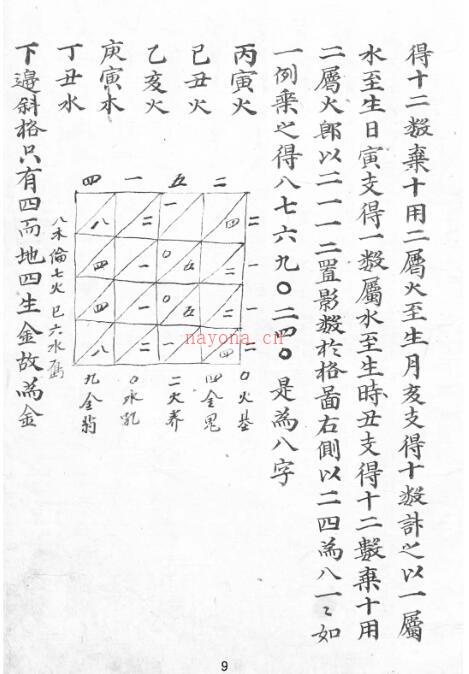 得十二数棄十用二屬火至生月亥支得十数計之以一屬
水至生日寅支得一数屬水至生時丑支得十二數棄十用
二屬火郎以二一一二置影数於格啚右側以二四為八一〻如
一例乘之得八七六九〇二四〇 是為八字
丙寅火
己丑火
乙亥火
庚寅木
丁丑水
四 一 五 二
八 二 一 四 二
四 一 〇 五 二 一
四 一 〇 五 二 一
八 二 一 四 二
八木倫 七火 巳 六水
九金
〇水乳
二火养
四金鬼
〇火基
下邊斜格只有四而地四生金故為金
nayona.cn
9